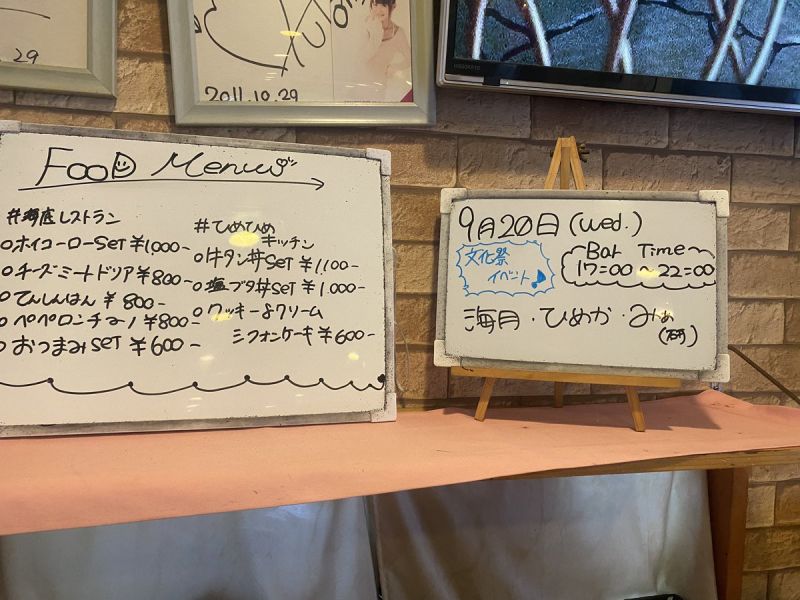 .29
2011.10.29
FooD Menu
#海底レストラン
○ホイコーローSET ¥1,000-
○チーズミートドリア¥800-
○てんしんはん ¥800-
○ペペロンチーノ ¥800-
○おつまみSET ¥600-
#ひめひめキッチン
○牛タン丼SET ¥1,100-
○塩ブタ丼SET ¥1,000-
○クッキー&クリーム
シフォンケーキ ¥600-
9月20日(wed.)
文化祭
イベント♪
Bar Time~
17:00~22:00
海月・ひめか・みぬ